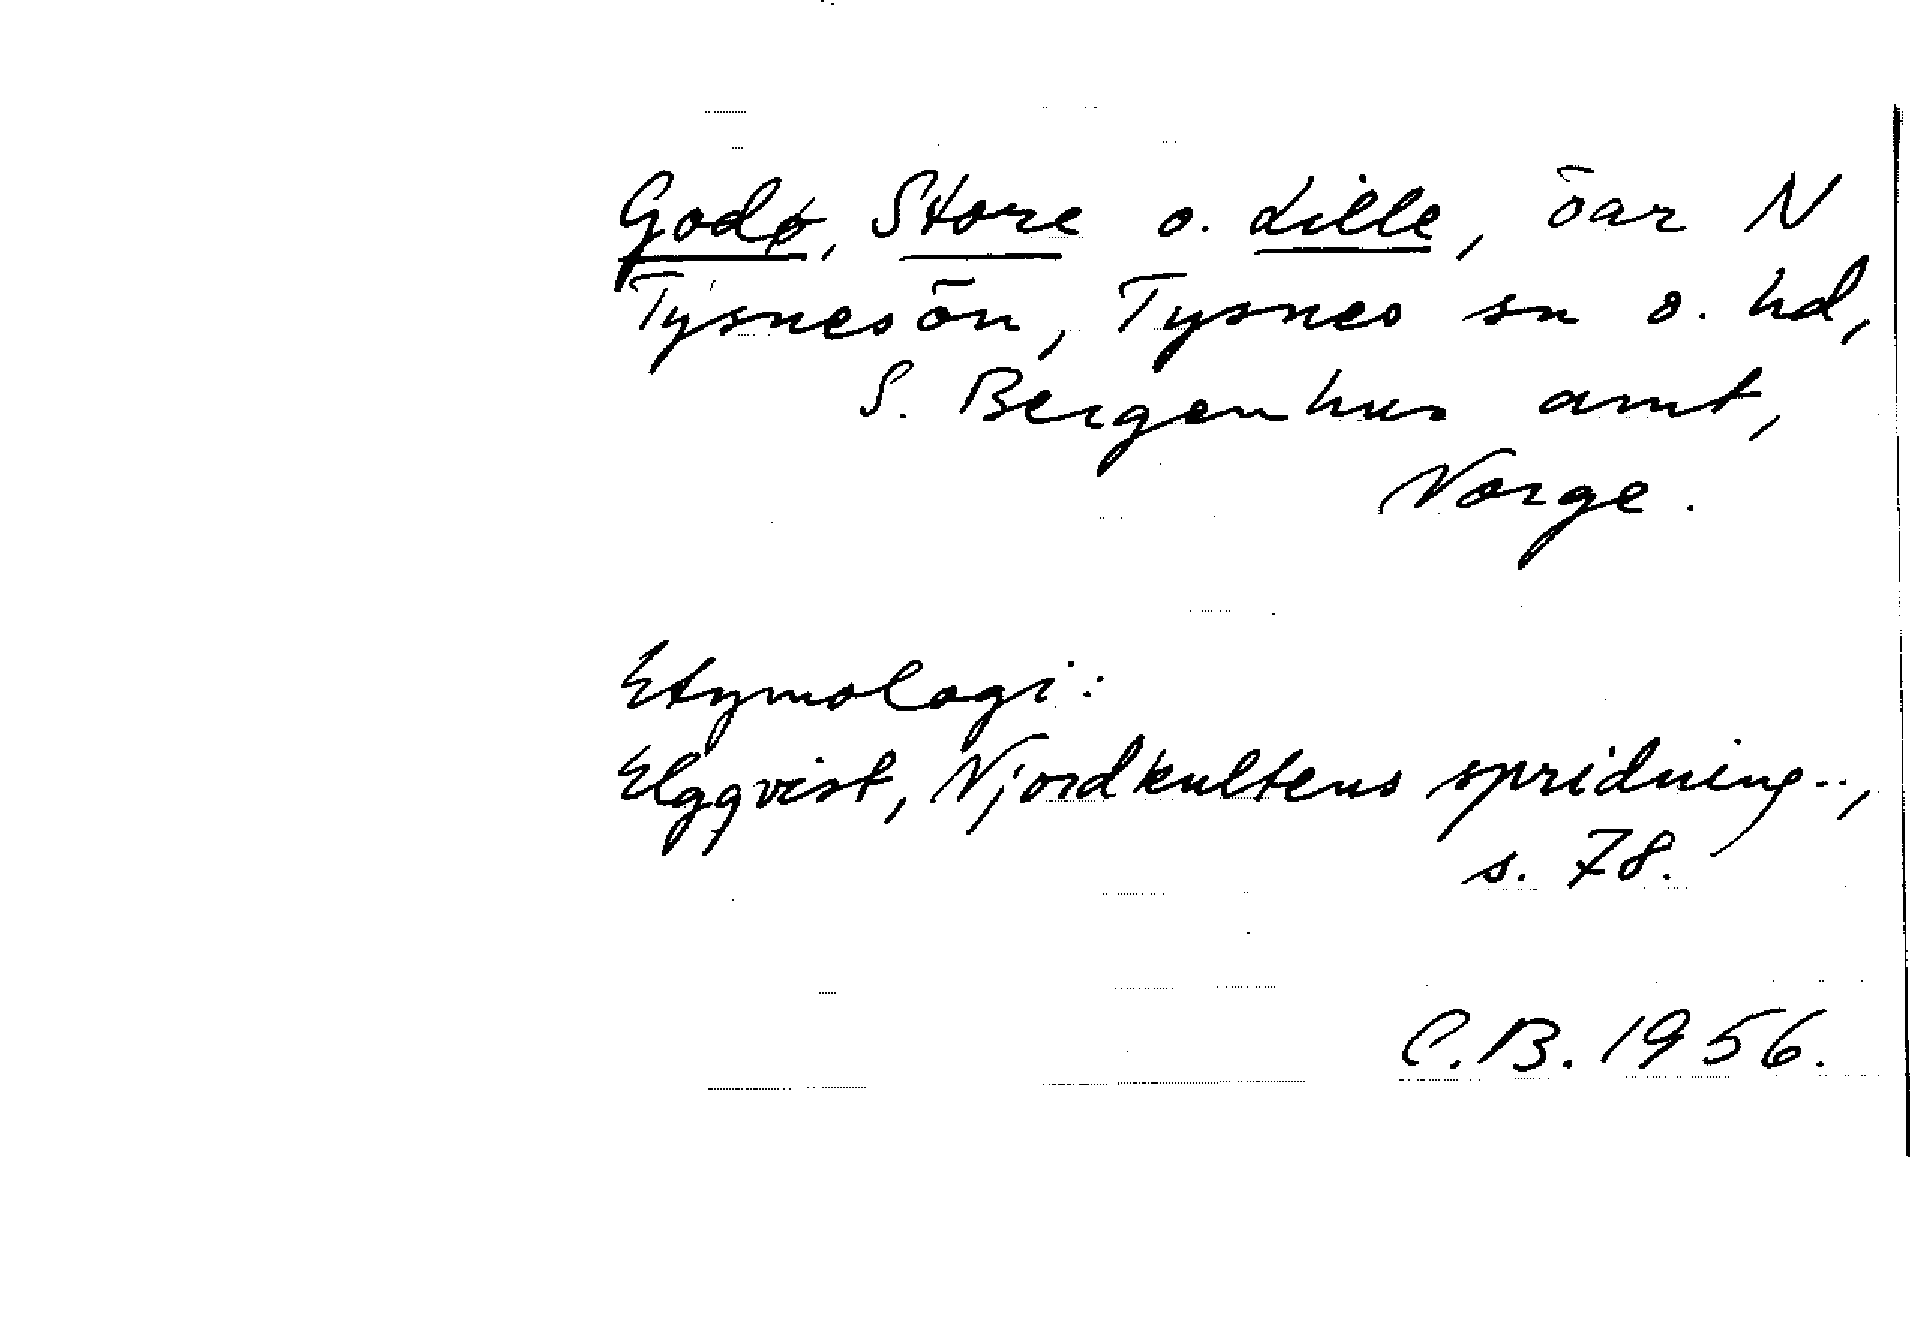 Godø, Store o. Lille, öar N
Tysnesön, Tysnes sn o. hd,
S. Bergenhus amt,
Norge.
Etymologi:
Elgqvist, Njordkultens spridning..,
s. 78.
C.B. 1956.